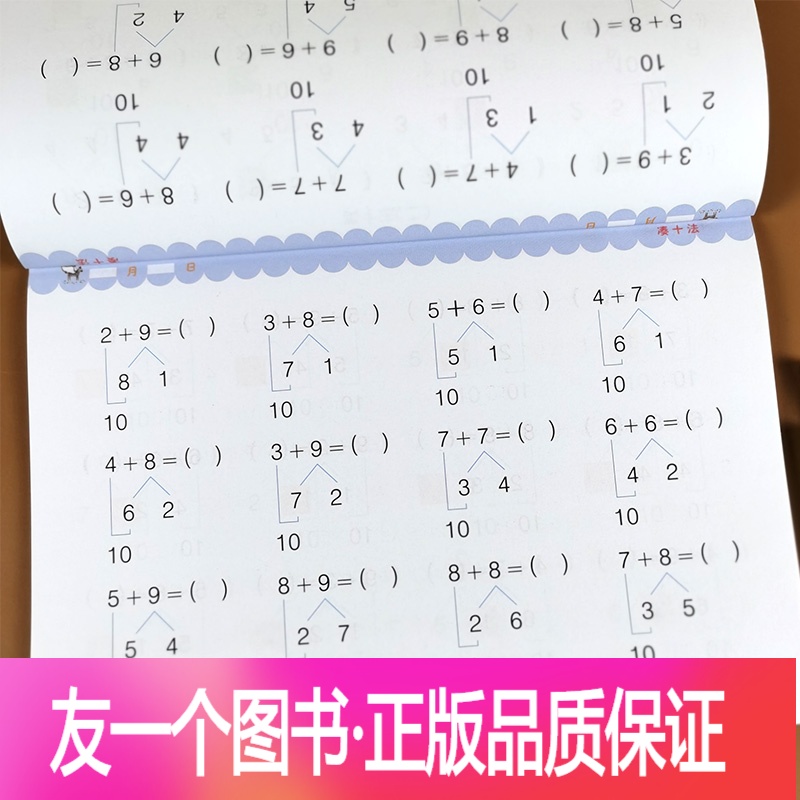 凑十法 月 日
3+9=( ) 4+7=( ) 7+7=( ) 8+6=( )
2 1 1 3 4 3 4 4
10 10 10 10
5+8=( ) 8+9=( ) 9+6=( ) 6+8=( )
5 4 4 2
月 日 凑十法
2+9=( ) 3+8=( ) 5+6=( ) 4+7=( )
8 1 7 1 5 1 6 1
10 10 10 10
4+8=( ) 3+9=( ) 7+7=( ) 6+6=( )
6 2 7 2 3 4 4 2
10 10 10 10
5+9=( ) 8+9=( ) 8+8=( ) 7+8=( )
5 4 2 7 2 6 3 5
10
友一个图书·正版品质保证